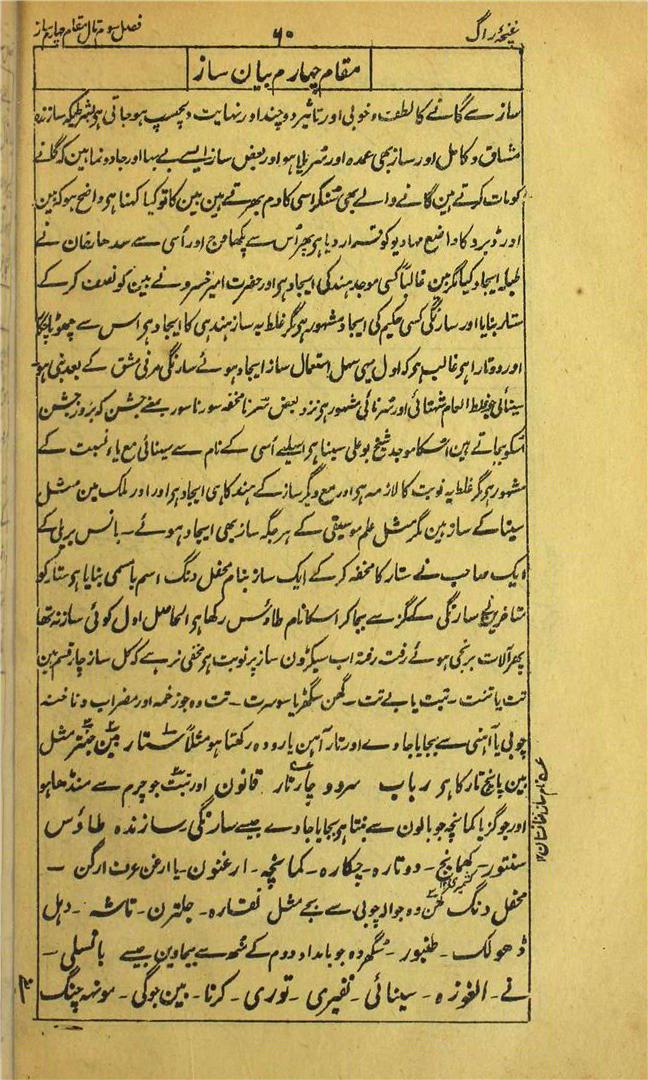 غنچۂ راگ
۶۰
فصل سوم تال مقام چہارم ساز
مقام چہارم بیان ساز
ساز سے گانے کا لطف و خوبی اور تاثیر دوچند اور نہایت دلچسپ ہو جاتی ہو بشرطیکہ سازندہ
مشاق و کامل اور ساز بھی عمدہ اور سُریلا ہو اور بعض ساز ایسے بے بہا اور جادو نما ہین کہ گلے
کو مات کرتے ہین گانے والے بھی سنکر اسی کا دم بھرتے ہین بین کا تو کیا کہنا ہو واضح ہو کہ بین
اور ڈبرو کا واضع مہادیو کو قرار دیا ہو پھر اُس سے پکھاوج اور اُسی سے سدھار خان نے
طبلہ ایجاد کیا مگر بین غالباً کسی موجد ہند کی ایجاد ہو اور حضرت امیر خسرو نے بین کو نصف کر کے
ستار بنایا اور سارنگی کسی حکیم کی ایجاد مشہور ہو مگر غلط یہ ساز ہندہی کا ایجاد ہو اس سے چھوٹا چکارا
اور دوتارا ہو غالب ہو کہ اول یہی سہل استعمال ساز ایجاد ہوئے سارنگی مدتی مشق کے بعد بنی ہو
سینائی جو غلط العام شہنائی اور سُرنائی مشہور ہو نزد بعض سُرنا مخفف سورنا سور بمعنے جشن کہ بروز جشن
اسکو بجاتے ہین اسکا موجد شیخ بوعلی سینا ہو اسلیے اُسی کے نام سے سینائی مع یاء نسبت کے
مشہور ہو مگر غلط یہ نوبت کا لازمہ ہو اور مع دیگر ساز کے ہند کا ہی ایجاد ہو اور اور ملک مین مثل
سینا کے ساز ہین مگر مثل علم موسیقی کے ہر جگہ ساز بھی ایجاد ہوئے ۔ بانس بریلی کے
ایک صاحب نے ستار کا مخفف کر کے ایک ساز بنام محفل دنگ اسم باسمی بنایا ہو ستار کو
متاخرین نے سارنگی کے گز سے بجا کر اسکا نام طاؤس رکھا ہو الحاصل اول کوئی ساز نہ تھا
پھر آلات برنجی ہوئے رفتہ رفتہ اب سیکڑون ساز پر نوبت ہو مخفی نرہے کہ کل ساز چار قسم ہین
تت یا تنت ۔ تبت یا بے تت ۔ گھن سگھر یا سوسرت ۔ تت وہ جو زخمہ اور مضراب و ناخنہ
چوبی یا آہنی سے بجایا جاوے اور تار آہن یا رودہ رکھتا ہو مثلاً ستار بین جنتر مثل
بین پانچ تار کا ہو رباب سرود چار تار قانون اور تبت جو چرم سے منڈھا ہو
اور جو گز یا کمانچہ جو بالون سے بنتا ہو بجایا جاوے جیسے سارنگی سازندہ طاؤس
سنتور ۔ کھانج ۔ دوتارہ ۔ چکارہ ۔ کمانچہ ۔ ارغنون ۔ یا ارغن عرف ارگن ۔
محفل دنگ گھن وہ جو آلہ چوبی سے بجے مثل نقارہ ۔ جلترن ۔ تاشہ ۔ دہل
ڈھولک ۔ طنبور ۔ سگھر وہ جو بامداد دوم کے منھ سے بجاوین جیسے بانسلی ۔
نے ۔ الغوزہ ۔ سینائی ۔ نفیری ۔ توری ۔ کرنا ۔ بین جوگی ۔ مونہہ چنگ